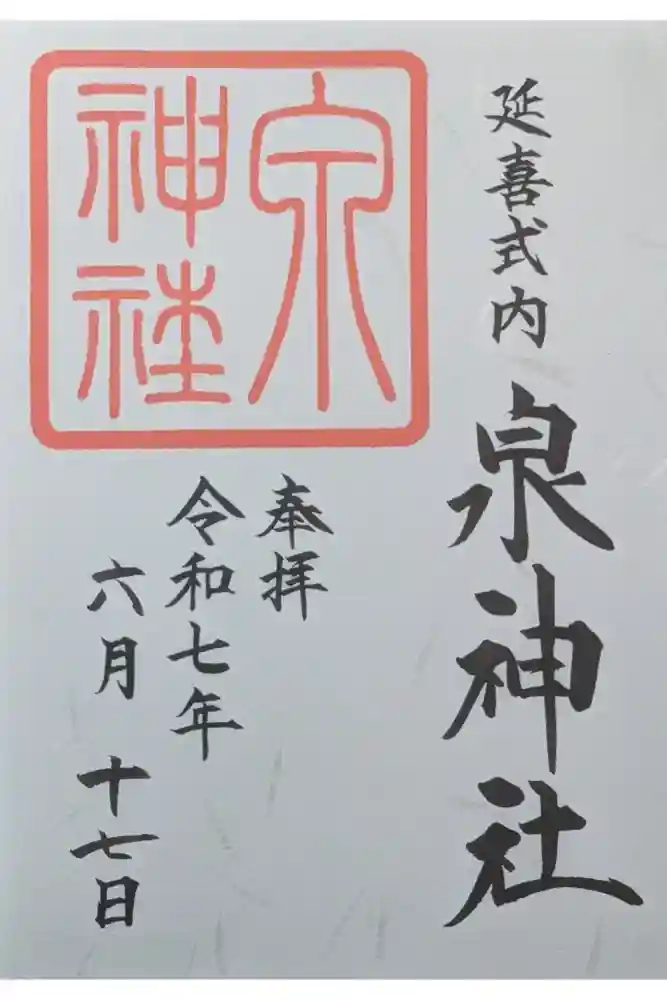 延喜式内 泉神社
泉
神社
奉拝
令和七年
六月十七日